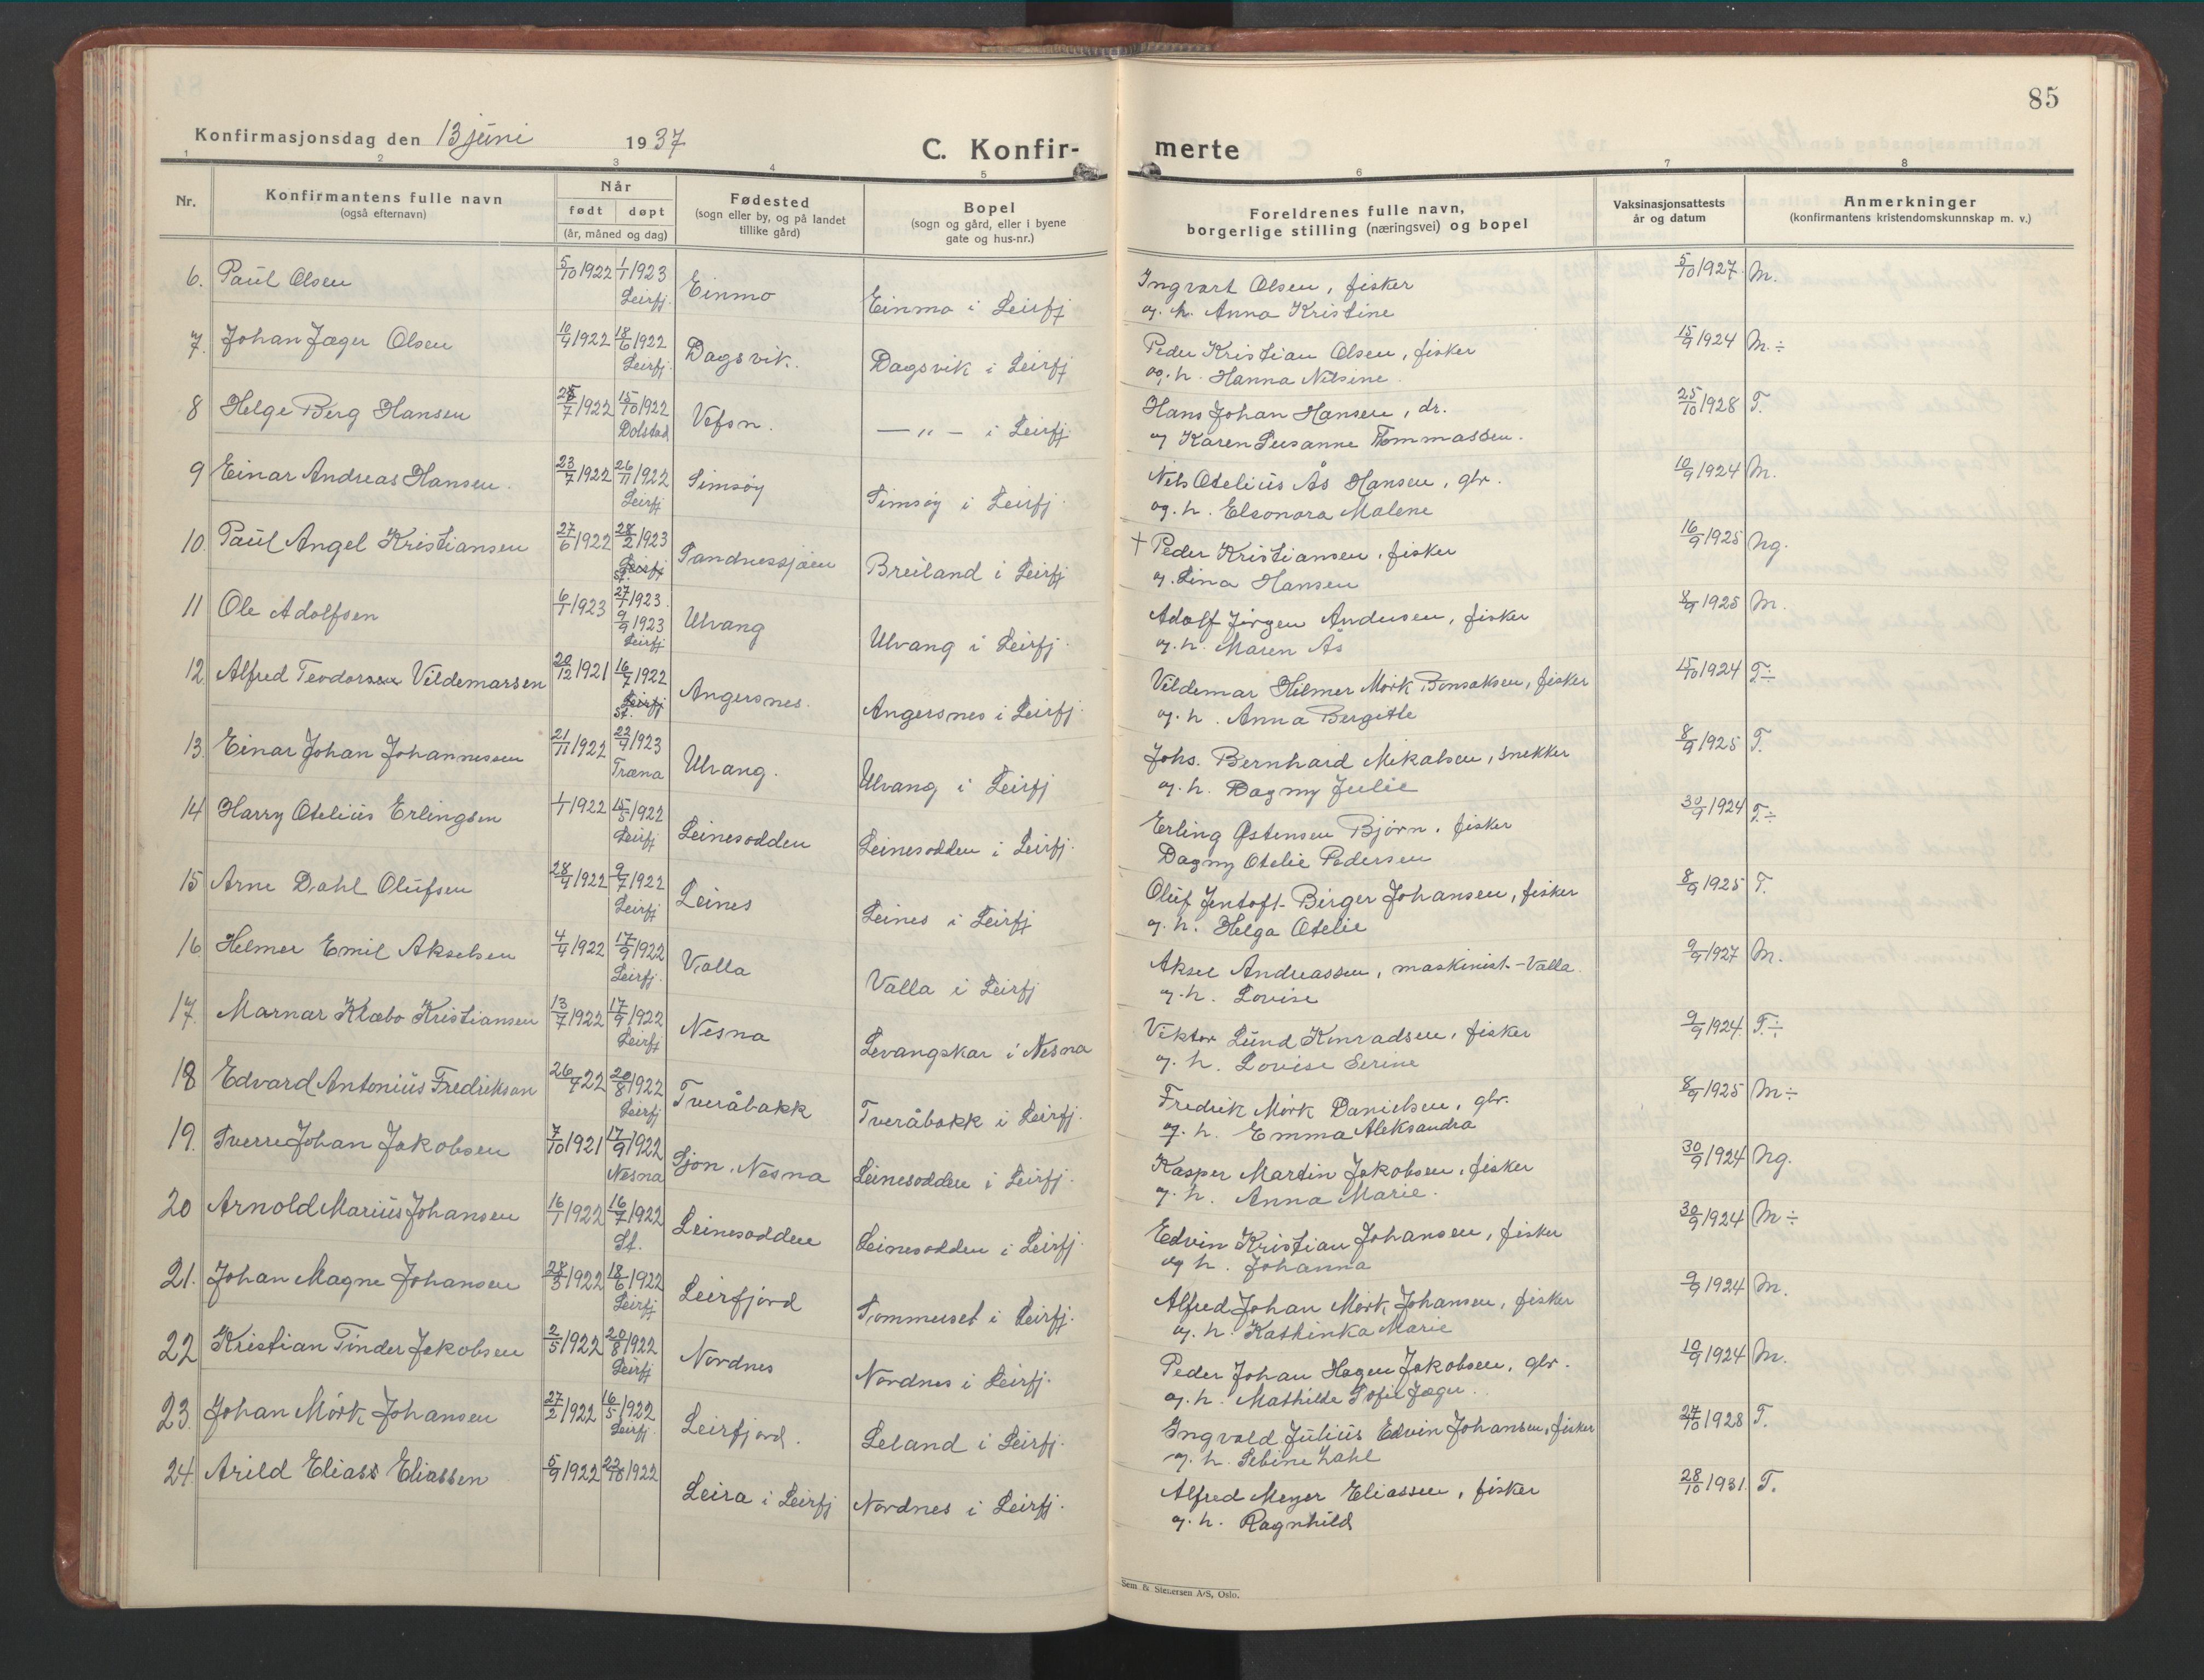 85
Konfirmasjonsdag den 13 juni 1937
C. Konfir- merte
1 2 3 4 5 6 7 8
Nr.
Konfirmantens fulle navn
(også efternavn)
Når
født døpt
(år, måned og dag)
Fødested
(sogn eller by, og på landet
tillike gård)
Bopel
(sogn og gård, eller i byene
gate og hus-nr.)
Foreldrenes fulle navn,
borgerlige stilling (næringsvei) og bopel
Vaksinasjonsattests
år og datum
Anmerkninger
(konfirmantens kristendomskunnskap m. v.)
6. Paul Olsen 5/10 1922 1/1 1923 Leirfj. Einmo Einmo i Leirfj Ingvart Olsen, fisker 5/10 1927 M.
og. h. Anna Kristine
7. Johan Jæger Olsen 10/4 1922 18/6 1922 Leirfj. Dagsvik. Dagsvik i Leirfj Peder Kristian Olsen, fisker 15/9 1924 M. ÷
og. h. Hanna Nilsine.
8 Helge Berg Hansen 28/7 1922 15/10 1922 Dolstad Vefsn. — " — i Leirfj. Hans Johan Hansen, dr. 25/10 1928 T.
og Karen Susanne Tommassen.
9 Einar Andreas Hansen. 23/7 1922 26/11 1922 Leirfj Simsøy Simsøy i Leirfj. Nils Otelius Ås Hansen, gbr. 10/9 1924 M.
og. h. Elsonora Malene
10. Paul Angel Kristiansen 27/6 1922 28/2 1923 Leirfj St. Sandnessjøen Breiland i Leirfj † Peder Kristiansen, fisker 16/9 1925 Ng.
og. Lina Hansen
11 Ole Adolfsen 6/1 1923 27/1 1923. 9/9 1923 Leirfj Ulvang Ulvang i Leirfj. Adolf Jørgen Andersen, fisker 8/9 1925 M.
og. h. Maren Ås
12. Alfred Teodorsen Vildemarsen 20/12 1921 16/7 1922 Leirfj St. Angersnes. Angersnes i Leirfj. Vildemar Hilmer Mørk Bensaksen, fisker 15/10 1924 T. ÷
og. h. Anna Bergitte
13. Einar Johan Johannessen 21/11 1922 22/4 1923 Træna Ulvang. Ulvang i Leirfj Johs. Bernhard Mikalsen, snekker 8/9 1925 T.
og. h. Dagny Julie
14 Harry Otelius Erlingsen 1/1 1922 15/5 1922 Leirfj Leinesodden Leinesodden i Leirfj. Erling Østensen Bjørn, fisker 30/9 1924 T. ÷
Dagny Otelie Pedersen
15 Arne Dahl Olufsen 28/4 1922 9/7 1922 Leirfj Leines Leines i Leirfj Oluf Jentoft Birger Johansen, fisker 8/9 1925 T.
og. h. Helga Otelie
16. Helmer Emil Akselsen 4/4 1922 17/9 1922 Leirfj. Valla Valla i Leirfj Aksel Andreassen, maskinist - Valla. 9/9 1927 M.
og. h. Lovise
17. Marnar Klæbo Kristiansen 13/7 1922 17/9 1922 Leirfj Nesna Levangskar i Nesna Viktor Lund Konradsen, fisker 9/9 1924. T. ÷
og. h. Lovise Serine
18 Edvard Antonius Fredriksen 26/4 22 20/8 1922 Leirfj Tveråbakk Tveråbakk i Leirfj. Fredrik Mørk Danielsen, gbr. 8/9 1925 M ÷
og. h. Emma Aleksandra
19. Sverre Johan Jakobsen 7/10 1921 17/9 1922 Nesna Sjon, Nesna Leinesodden i Leirfj. Kasper Martin Jakobsen, fisker 30/9 1924 Ng.
og. h. Anna Marie.
20 Arnold Marius Johansen 16/1 1922 16/7 1922 St. Leinesodden Leinesodden i Leirfj. Edvin Kristian Johansen, fisker 30/9 1924 M ÷
og h. Johanna
21. Johan Magne Johansen 28/3 1922 18/6 1922 Leirfj Leirfjord Sommerset i Leirfj. Alfred Johan Mørk Johansen, fisker 9/9 1924 M.
og. h. Kathinka Marie
22 Kristian Tinder Jakobsen 2/5 1922 20/8 1922 Leirfj Nordnes Nordnes i Leirfj. Peder Johan Hagen Jakobsen, gbr. 10/9 1924 M.
og. h. Mathilde Sofie Jæger.
23. Johan Mørk Johansen 27/2 1922 16/5 1922 Leirfj. Leirfjord. Leland i Leirfj. Ingvald Julius Edvin Johansen, fisker 27/10 1928 T.
og. h. Sebine Zahl
24. Arild Eliass Eliassen 5/9 1922 22/10 1922 Leira i Leirfj Nordnes i Leirfj. Alfred Meyer Eliassen, fisker 28/10 1931. T.
og. h. Ragnhild
Sem & Stenersen A/S, Oslo.